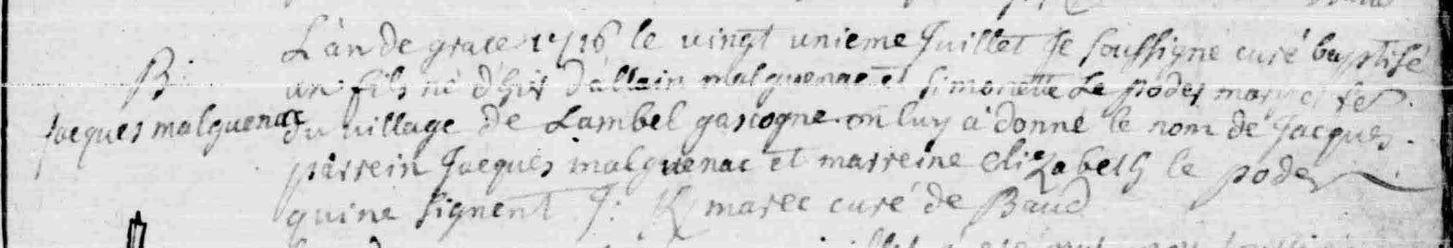 L'an de grace 1716 le vingt unieme Juillet Je soussigné curé baptisé
B.
un fils né d'hir d'allain malguenac et simonette Le poder mariés
jacques malguenac
du village de Lambel gascogne on luy a donné le nom de Jacques.
parrein Jacques malguenac et marreine elizabeth le poder
qui ne signent J: marec curé de Baud